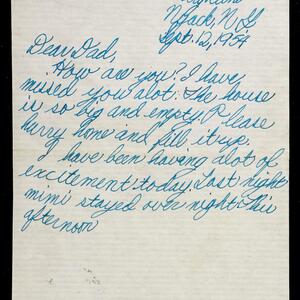 Nyack, N.Y.
Sept. 12, 1954
Dear Dad,
How are you? I have
missed you alot. The house
is so big and empty. Please
hurry home and fill it up.
I have been having alot of
excitement today. Last night
mimi stayed over night. This
afternoon